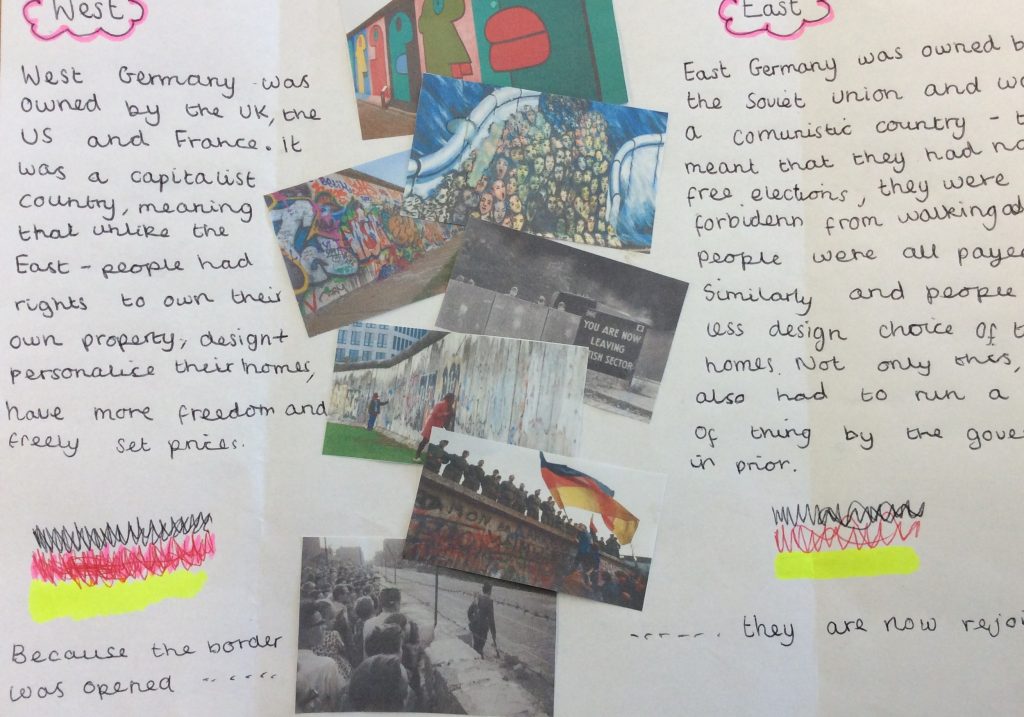 West
West Germany was
owned by the UK, the
US and France. It
was a capitalist
country, meaning
that unlike the
East - people had
rights to own their
own property, design +
personalice their homes,
have more freedom and
freely set prices.
Because the border
was opened ------
YOU ARE NOW
LEAVING
SECTOR
East
East Germany was owned b
the Soviet Union and w
a comunistic country - t
meant that they had no
free elections, they were
forbidenn from walking
people were all paye
Similarly and people
less design choice of t
homes. Not only this,
also had to run a
of thing by the gove
in prior.
------- they are now rejoi